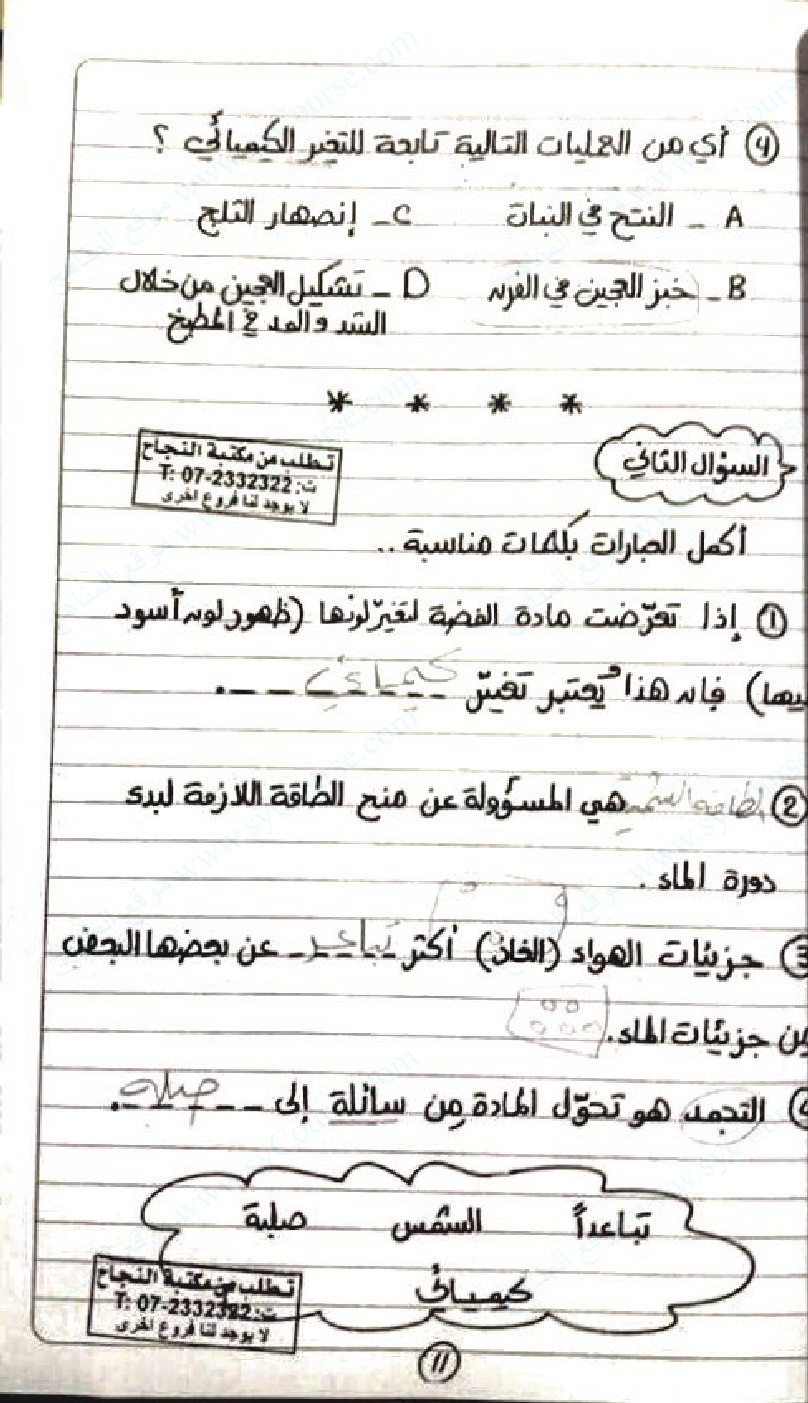 ④ أي من العمليات التالية تابعة للتغير الكيميائي ؟
A - النتح في النبات C - إنصهار الثلج
B - خبز العجين في الفرن D - تشكيل العجين من خلال
الشد والمد في المطبخ
* * * *
السؤال الثاني
تطلب من مكتبة النجاح
ت: T: 07-2332322
لا يوجد لنا فروع اخرى
أكمل العبارات بكلمات مناسبة ..
① إذا تعرّضت مادة الفضة لتغيّر لونها (ظهور لون أسود
فيها) فإن هذا يُعتبر تغيّر كيميائي .
② الطاقة الشمسية هي المسؤولة عن منح الطاقة اللازمة لبدء
دورة الماء .
③ جزيئات الهواء (الغاز) أكثر تباعد عن بعضها البعض
من جزيئات الماء.
التجمد هو تحوّل المادة من سائلة إلى صلبة .
تباعداً الشمس صلبة
كيميائي
تطلب من مكتبة النجاح
ت: T: 07-2332322
لا يوجد لنا فروع اخرى
11